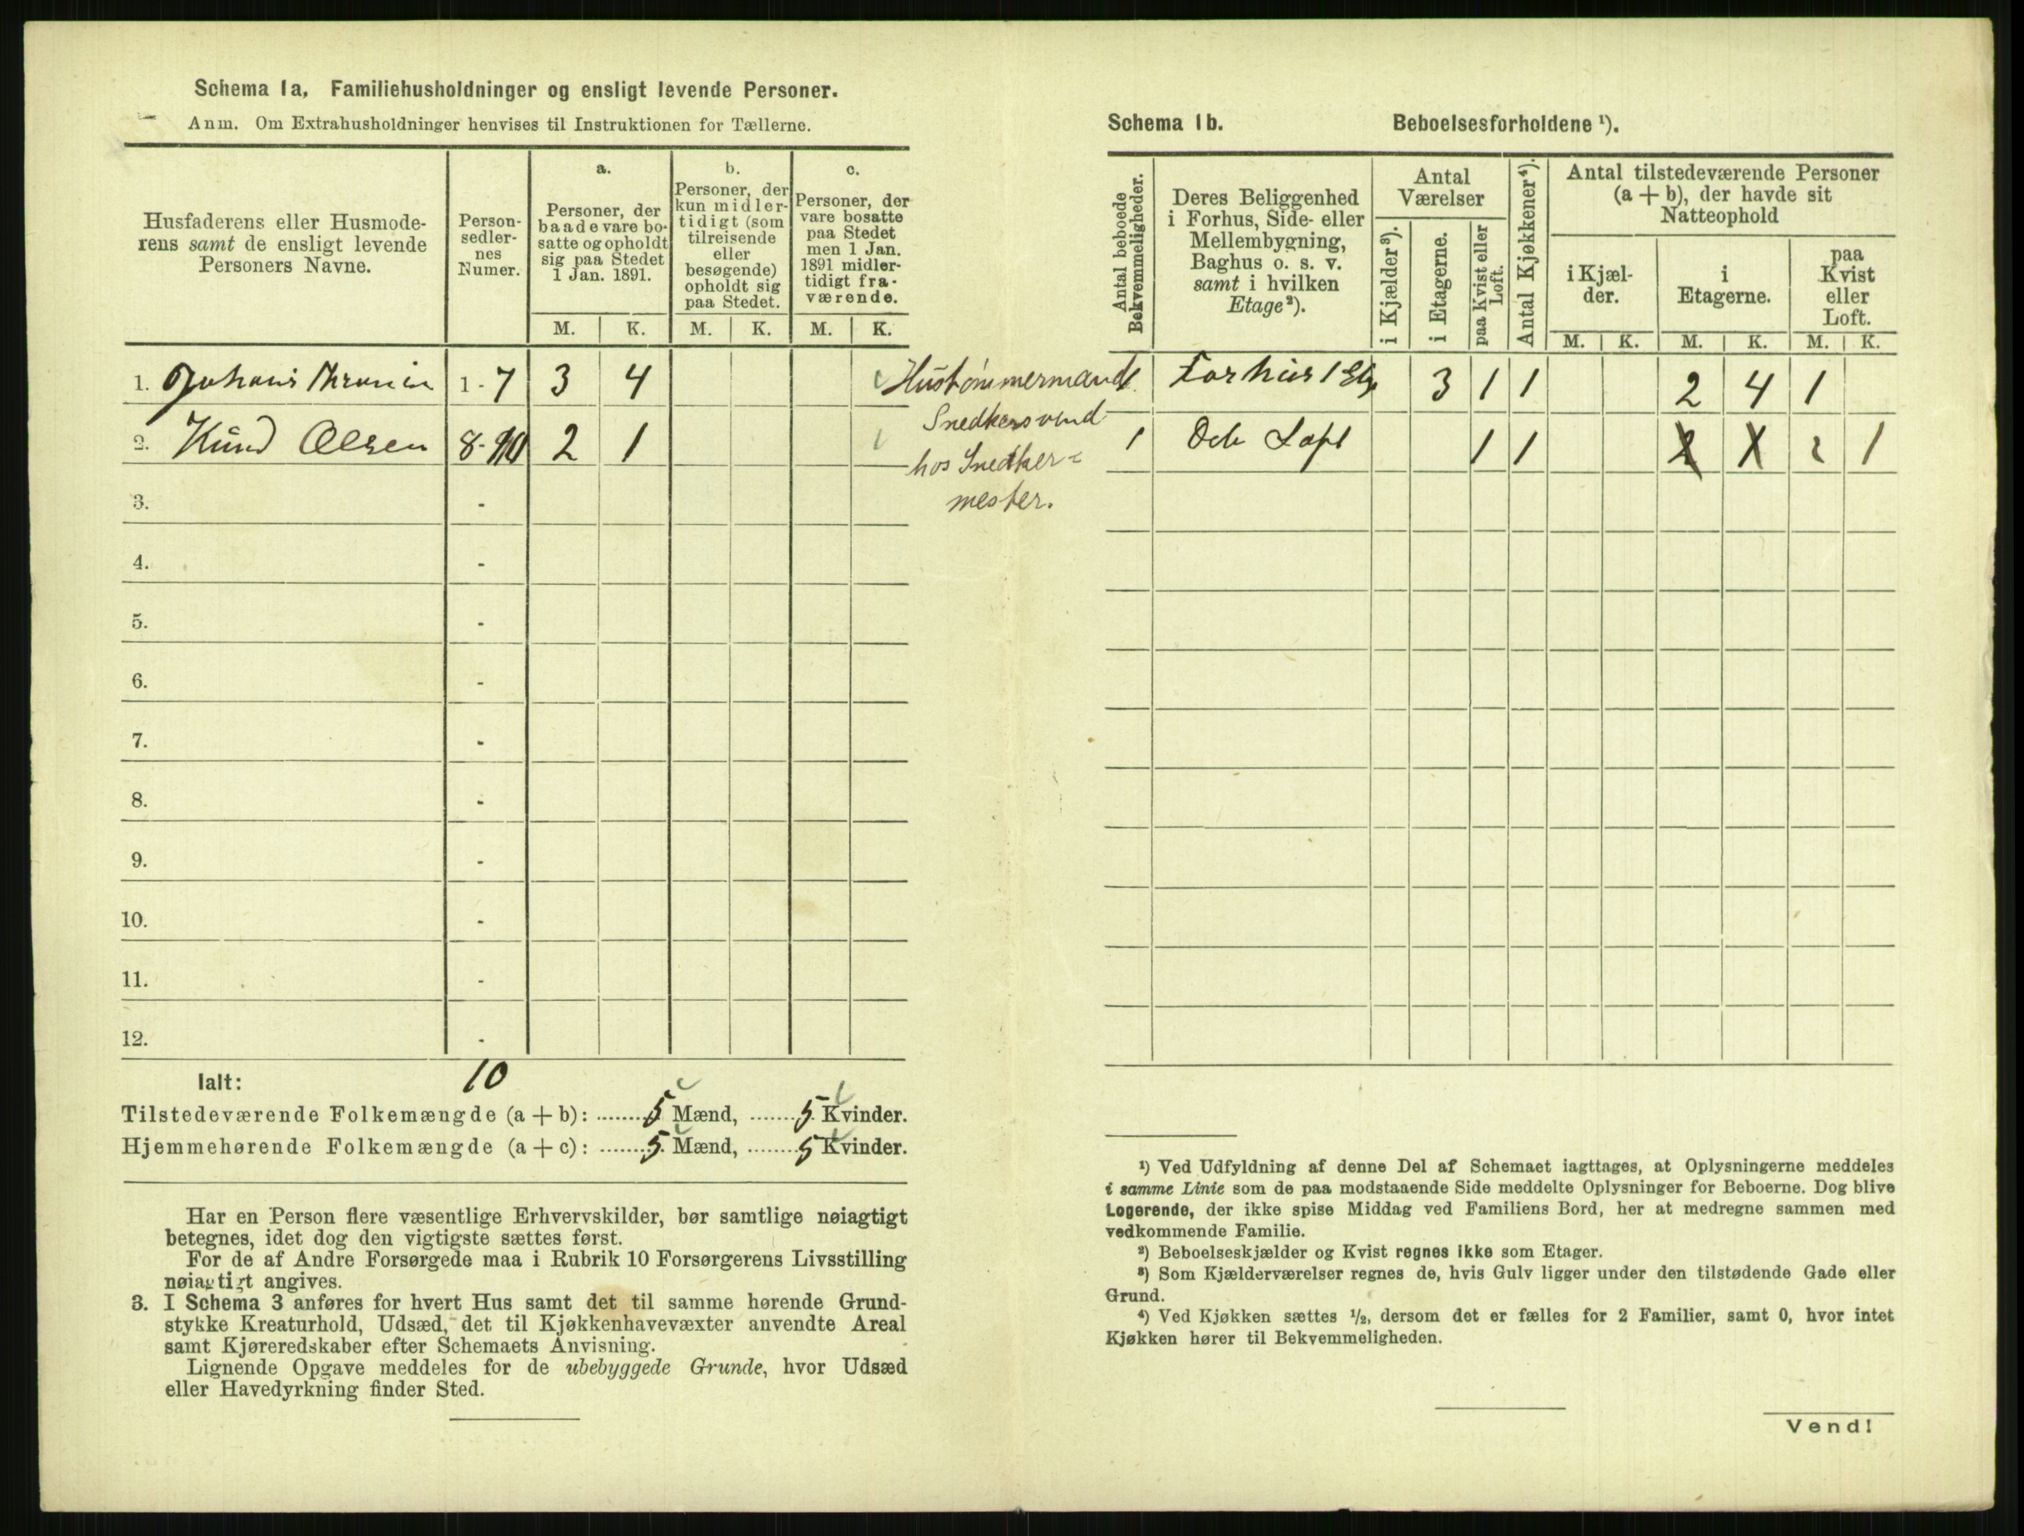 Schema 1a, Familiehusholdninger og ensligt levende Personer.
Anm. Om Extrahusholdninger henvises til Instruktionen for Tællerne.
Husfaderens eller Husmode-
rens samt de ensligt levende
Personers Navne.
Person-
sedler-
nes
Numer.
a.
Personer, der
baade vare bo-
satte og opholdt
sig paa Stedet
1 Jan. 1891.
b.
Personer, der
kun midler-
tidigt (som
tilreisende
eller
besøgende)
opholdt sig
paa Stedet.
c.
Personer, der
vare bosatte
paa Stedet
men 1 Jan.
1891 midler-
tidigt fra-
værende.
M. K. M. K. M. K.
1. Johans 1-7 3 4
2. Knud Olsen 8-10 2 1
3. -
4. -
5. -
6. -
7. -
8. -
9. -
10. -
11. -
12. -
Hustømmermand
Snedkersvend
hos Snedker-
mester.
Ialt: 10
Tilstedeværende Folkemængde (a + b): 5 Mænd, 5 Kvinder.
Hjemmehørende Folkemængde (a + c): 5 Mænd, 5 Kvinder.
Har en Person flere væsentlige Erhvervskilder, bør samtlige nøiagtigt
betegnes, idet dog den vigtigste sættes først.
For de af Andre Forsørgede maa i Rubrik 10 Forsørgerens Livsstilling
nøiagtigt angives.
3. I Schema 3 anføres for hvert Hus samt det til samme hørende Grund-
stykke Kreaturhold, Udsæd, det til Kjøkkenhavevæxter anvendte Areal
samt Kjøreredskaber efter Schemaets Anvisning.
Lignende Opgave meddeles for de ubebyggede Grunde, hvor Udsæd
eller Havedyrkning finder Sted.
Schema 1b. Beboelsesforholdene ¹).
Antal beboede
Bekvemmeligheder.
Deres Beliggenhed
i Forhus, Side- eller
Mellembygning,
Baghus o. s. v.
samt i hvilken
Etage²).
Antal
Værelser
i Kjælder³).
i Etagerne.
paa Kvist eller
Loft.
Antal Kjøkkener⁴).
Antal tilstedeværende Personer
(a + b), der havde sit
Natteophold
i Kjæl-
der.
i
Etagerne.
paa
Kvist
eller
Loft.
M. K. M. K. M. K.
1 Forhus 1 Etg 3 1 1 2 4 1
1 Och Loft 1 1 2 1
¹) Ved Udfyldning af denne Del af Schemaet iagttages, at Oplysningerne meddeles
i samme Linie som de paa modstaaende Side meddelte Oplysninger for Beboerne. Dog blive
Logerende, der ikke spise Middag ved Familiens Bord, her at medregne sammen med
vedkommende Familie.
²) Beboelseskjælder og Kvist regnes ikke som Etager.
³) Som Kjælderværelser regnes de, hvis Gulv ligger under den tilstødende Gade eller
Grund.
⁴) Ved Kjøkken sættes ½, dersom det er fælles for 2 Familier, samt 0, hvor intet
Kjøkken hører til Bekvemmeligheden.
Vend!